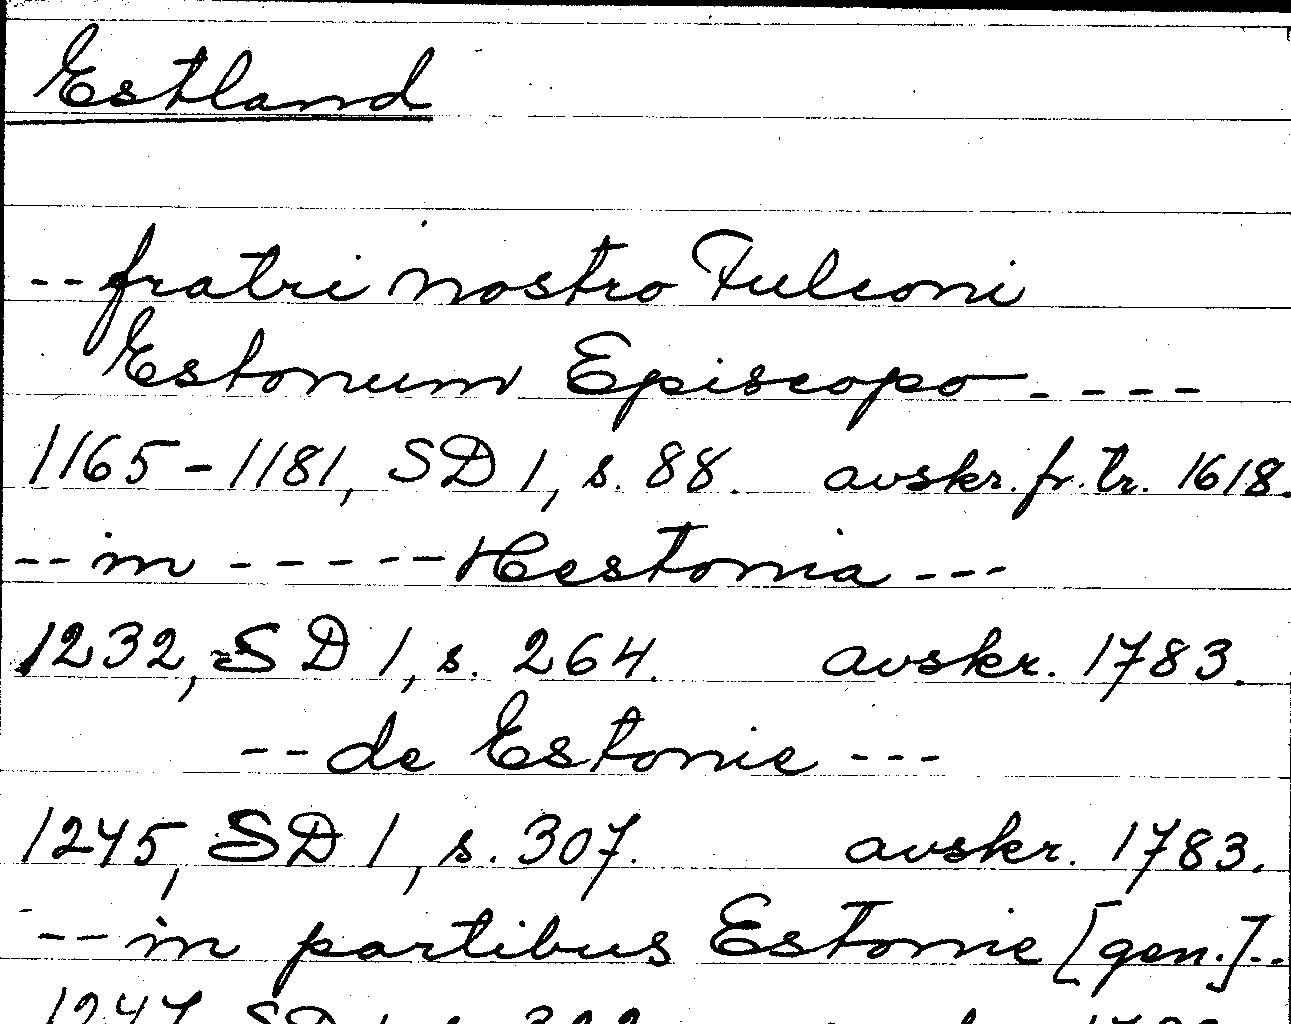 Estland
--fratri nostro Fulconi
Estonum Episcopo ----
1165-1181, SD 1, s. 88. avskr. fr. tr. 1618.
--in -----Hestonia ---
1232, SD 1, s. 264. avskr. 1783.
--de Estonie ---
1245, SD 1, s. 307. avskr. 1783.
--in partibus Estonie [gen.]--
1247 SD 1